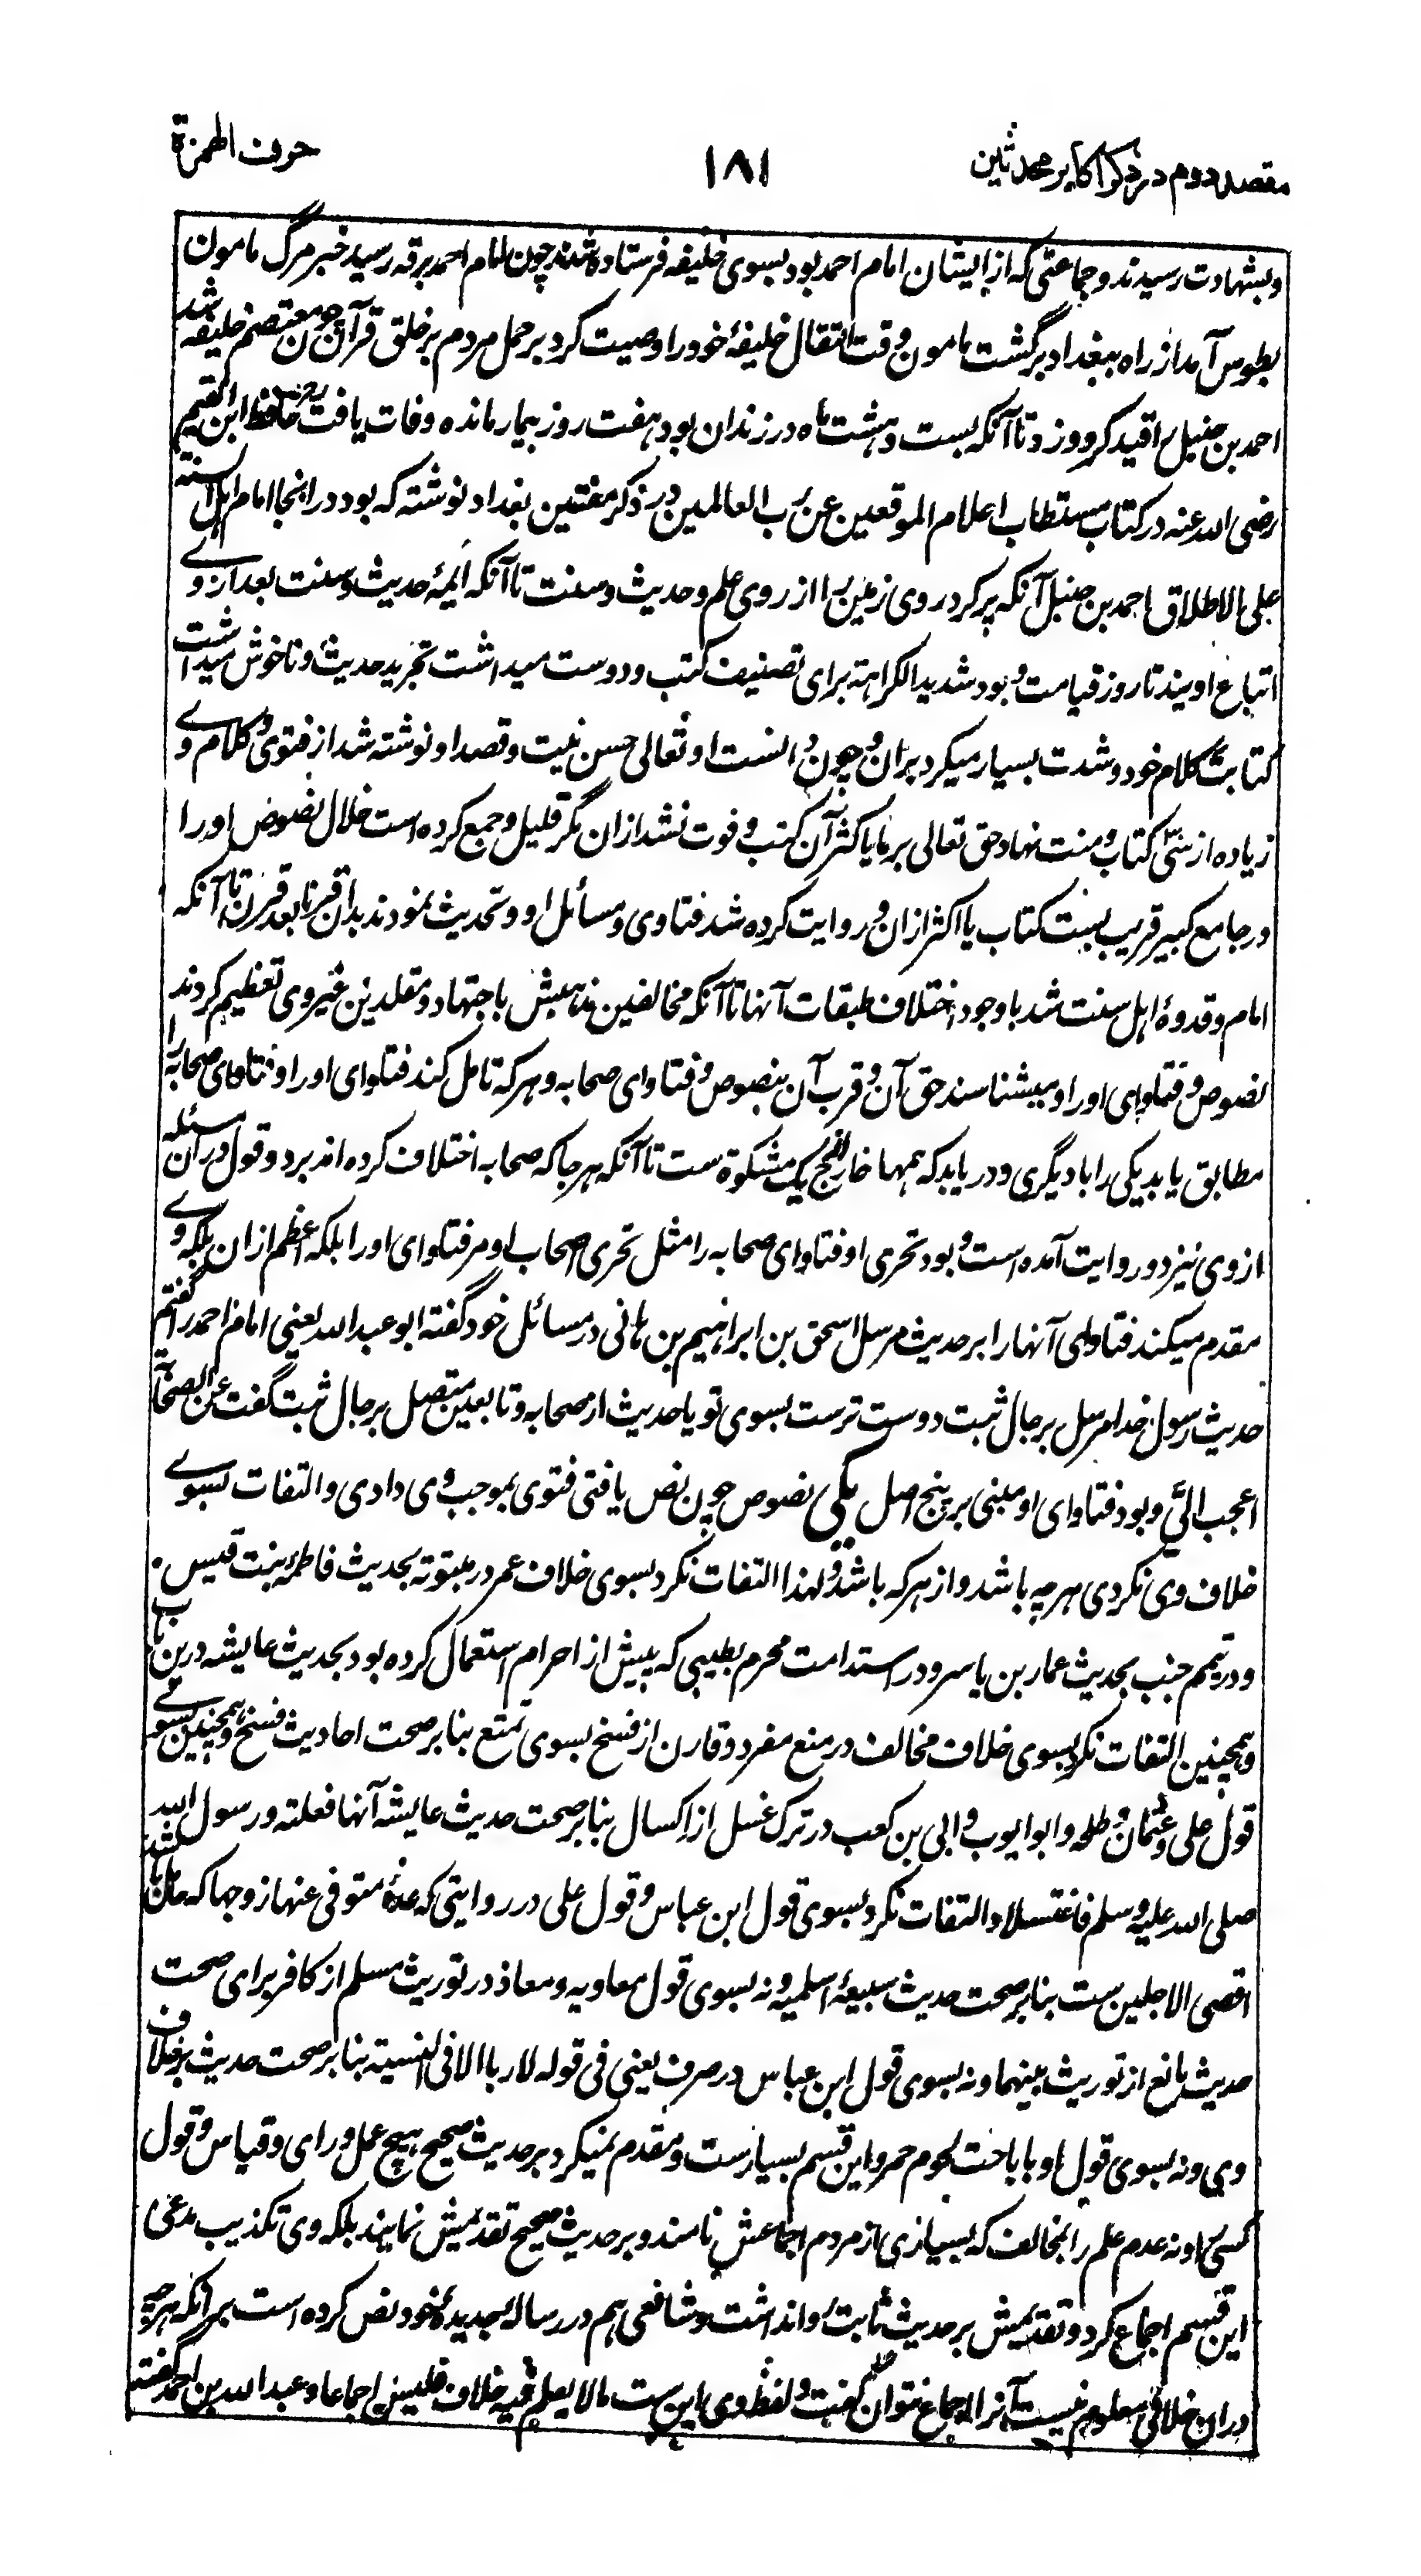 مقصد دوم در ذکر اکابر محدثین
۱۸۱
حرف الهمزة
وبشهادت رسیدند و جماعتی که از ایشان امام احمد بود بسوی خلیفه فرستاده شدند چون امام احمد برقه رسید خبر مرگ مامون
بطوس آمد از راه ببغداد برگشت مامون وقت انتقال خلیفۀ خود را وصیت کرد بر حمل مردم بر خلق قرآن چون معتصم خلیفه شد
احمد بن حنبل را قید کرد و زد تا آنکه بست و هشت ماه در زندان بود هفت روز بیمار مانده وفات یافت رحمه حافظ ابن القیم
رضی الله عنه در کتاب مستطاب اعلام الموقعین عن رب العالمین در ذکر مفتین بغداد نوشته که بود در انجا امام اهل السنة
علی الاطلاق احمد بن حنبل آنکه پر کرد روی زمین را از روی علم و حدیث و سنت تا آنکه ائمۀ حدیث و سنت بعد از وے
اتباع اویند تا روز قیامت و بود شدید الکراهته برای تصنیف کتب و دوست میداشت تجرید حدیث و ناخوش میداشت
کتابت کلام خود و شدت بسیار میکرد بران و چون دانست او تعالی حسن نیت و قصد او نوشته شد از فتوی و کلام وے
زیاده از سی کتاب و منت نهاد حق تعالی بر ما با کثر آن کتب و فوت نشد ازان مگر قلیل و جمع کرده است خلال نصوص او را
در جامع کبیر قریب بست کتاب یا اکثر ازان و روایت کرده شد فتاوی و مسائل او و تحدیث نمودند بدان قرنا بعد قرن تا آنکه
امام و قدوۀ اهل سنت شد با وجود اختلاف طبقات آنها تا آنکه مخالفین مذهبش باجتهاد و مقلدین غیر وی تعظیم کردند
نصوص و فتاوای او را و میشناسند حق آن و قرب آن بنصوص و فتاوای صحابه و هر که تامل کند فتاوای او را و فتاوای صحابه را
مطابق یابد یکی را با دیگری و دریابد که همها خارج یک مشکوة ست تا آنکه هر جا که صحابه اختلاف کرده اند برد و قول دران مسئله
از وی نیز دو روایت آمده است و بود تحری او فتاوای صحابه را مثل تحری اصحاب او مر فتاوای او را بلکه اعظم ازان بلکه وے
مقدم میکند فتاوای آنها را بر حدیث مرسل اسحق بن ابراهیم بن هانی در مسائل خود گفته ابو عبد الله یعنی امام احمد را گفتم
حدیث رسول خدا مرسل برجال ثبت دوست ترست بسوی تو یا حدیث از صحابه و تابعین متصل برجال ثبت گفت عن الصحابة
اعجب الیّ و بود فتاوای او مبنی بر پنج اصل یکی نصوص چون نص یافتی فتوی بموجب وی دادی و التفات بسوے
خلاف وی نکردی هر چه باشد و از هر که باشد و لهذا التفات نکرد بسوی خلاف عمر در مبتوته بحدیث فاطمه بنت قیس
و در تیمم جنب بحدیث عمار بن یاسر و در استدامت محرم بطیبی که پیش از احرام استعمال کرده بود بحدیث عایشه درین باب
و همچنین التفات نکرد بسوی خلاف مخالف در منع مفرد و قارن از فسخ بسوی تمتع بنابر صحت احادیث فسخ و همچنین بسوے
قول علی و عثمان و طلحه و ابو ایوب و ابی بن کعب در ترک غسل از اکسال بنابر صحت حدیث عایشه آنها فعلته و رسول الله
صلی الله علیه و سلم فاغتسلا و التفات نکرد بسوی قول ابن عباس و قول علی در روایتی که عدۀ متوفی عنها زوجها که حامل باشد
اقصی الاجلین ست بنابر صحت حدیث سبیعۀ اسلمیه و نه بسوی قول معاویه و معاذ در توریث مسلم از کافر برای صحت
حدیث مانع از توریث بینهما و نه بسوی قول ابن عباس در صرف یعنی فی قوله لا ربا الا فی النسیة بنابر صحت حدیث بر خلاف
وی و نه بسوی قول او باباحت لحوم حمر و این قسم بسیارست و مقدم نمیکرد بر حدیث صحیح هیچ عمل و رای و قیاس و قول
کسی را و نه عدم علم را بمخالف که بسیاری از مردم اجماعش نامند و بر حدیث صحیح تقدیمش نمایند بلکه وی تکذیب مدعی
این قسم اجماع کرد و تقدیمش بر حدیث ثابت روا نداشت و شافعی هم در رسالۀ جدیدۀ خود نص کرده است برانکه هر چه
دران خلافی معلوم نیست آنرا اجماع نتوان گفت و لفظ وی این ست مالا یعلم فیه خلاف فلیس اجماعا و عبد الله بن احمد گفته